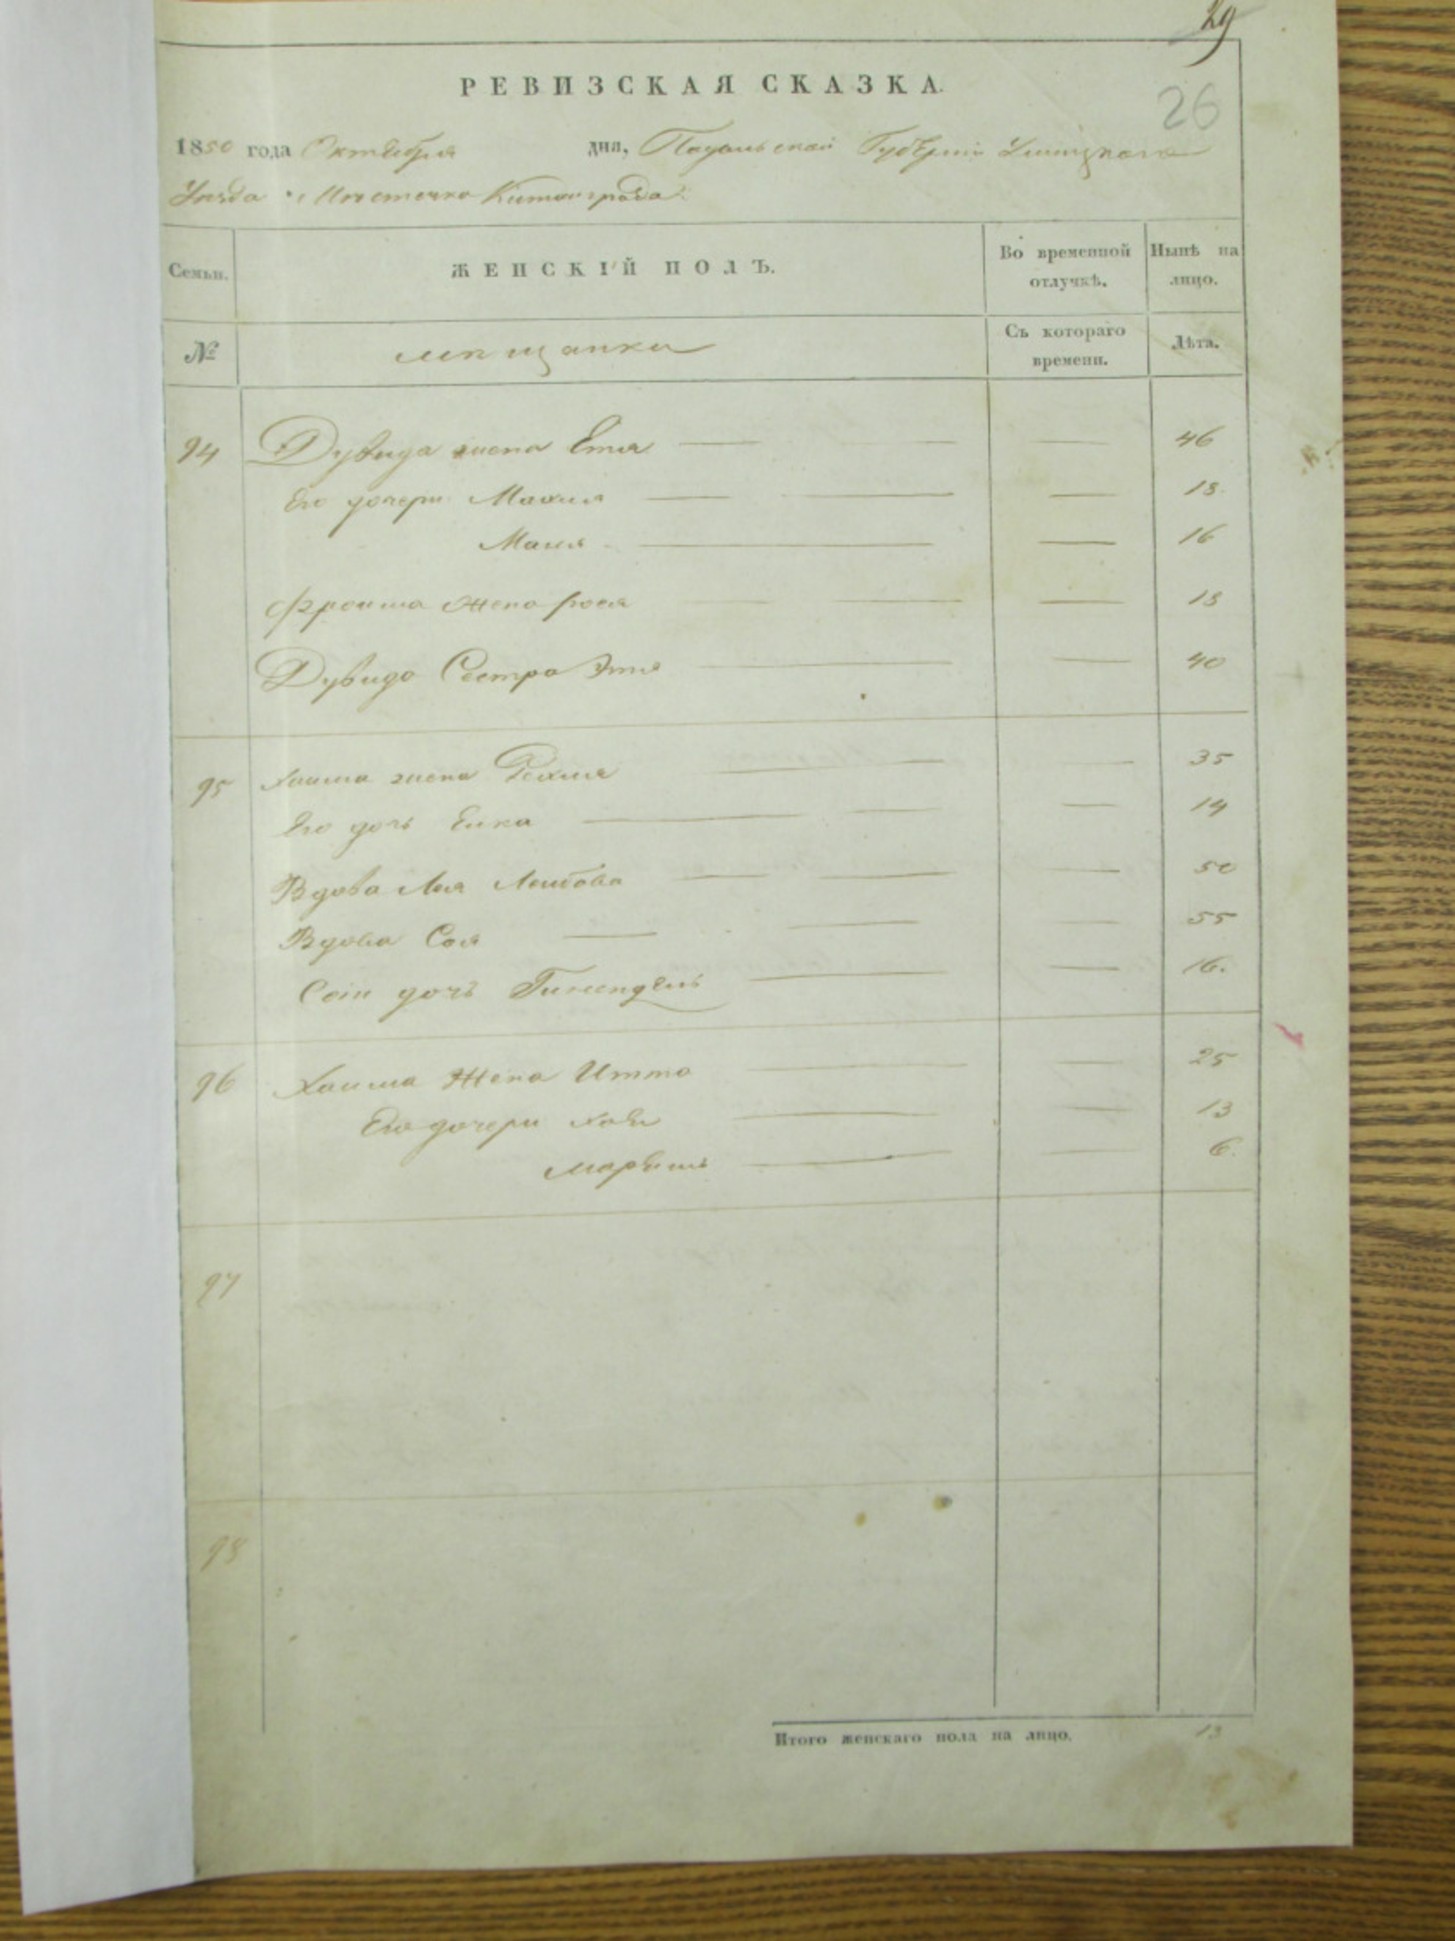 29
26
РЕВИЗСКАЯ СКАЗКА.
1850 года Октября дня, Подольской Губерніи Ушицкаго
Уезда Местечка Китайгрода
Семьи. ЖЕНСКІЙ ПОЛЪ. Во временной отлучкѣ. Нынѣ на лицо.
№ мещанки Съ котораго времени. Лѣта.
94 Дувида жена Етя 46
Его дочери 18
Маля 16
Фроима жена Рося 18
Дувида Сестра Этя 40
95 Хаима жена Рехля 35
Его дочь Елка 14
Вдова Лея Леибова 50
Вдова Сося 55
дочь 16.
96 Хаима Жена Итта 25
Его дочери Хова 13
6.
97
98
Итого женскаго пола на лицо. 13